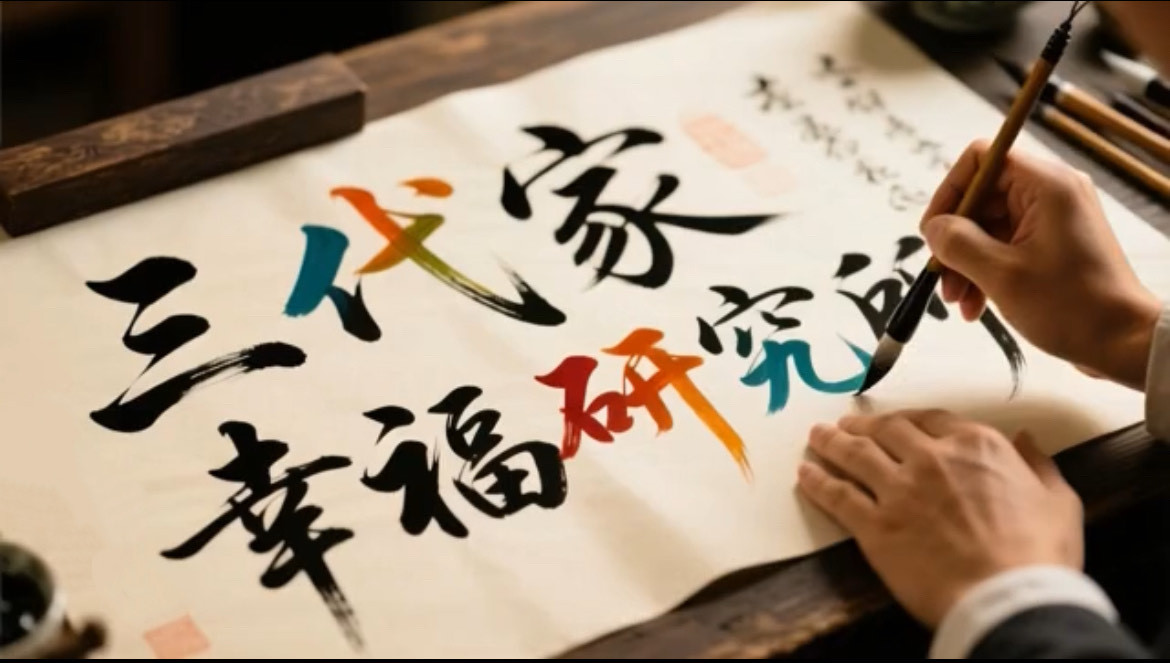 三代家
幸福研究所